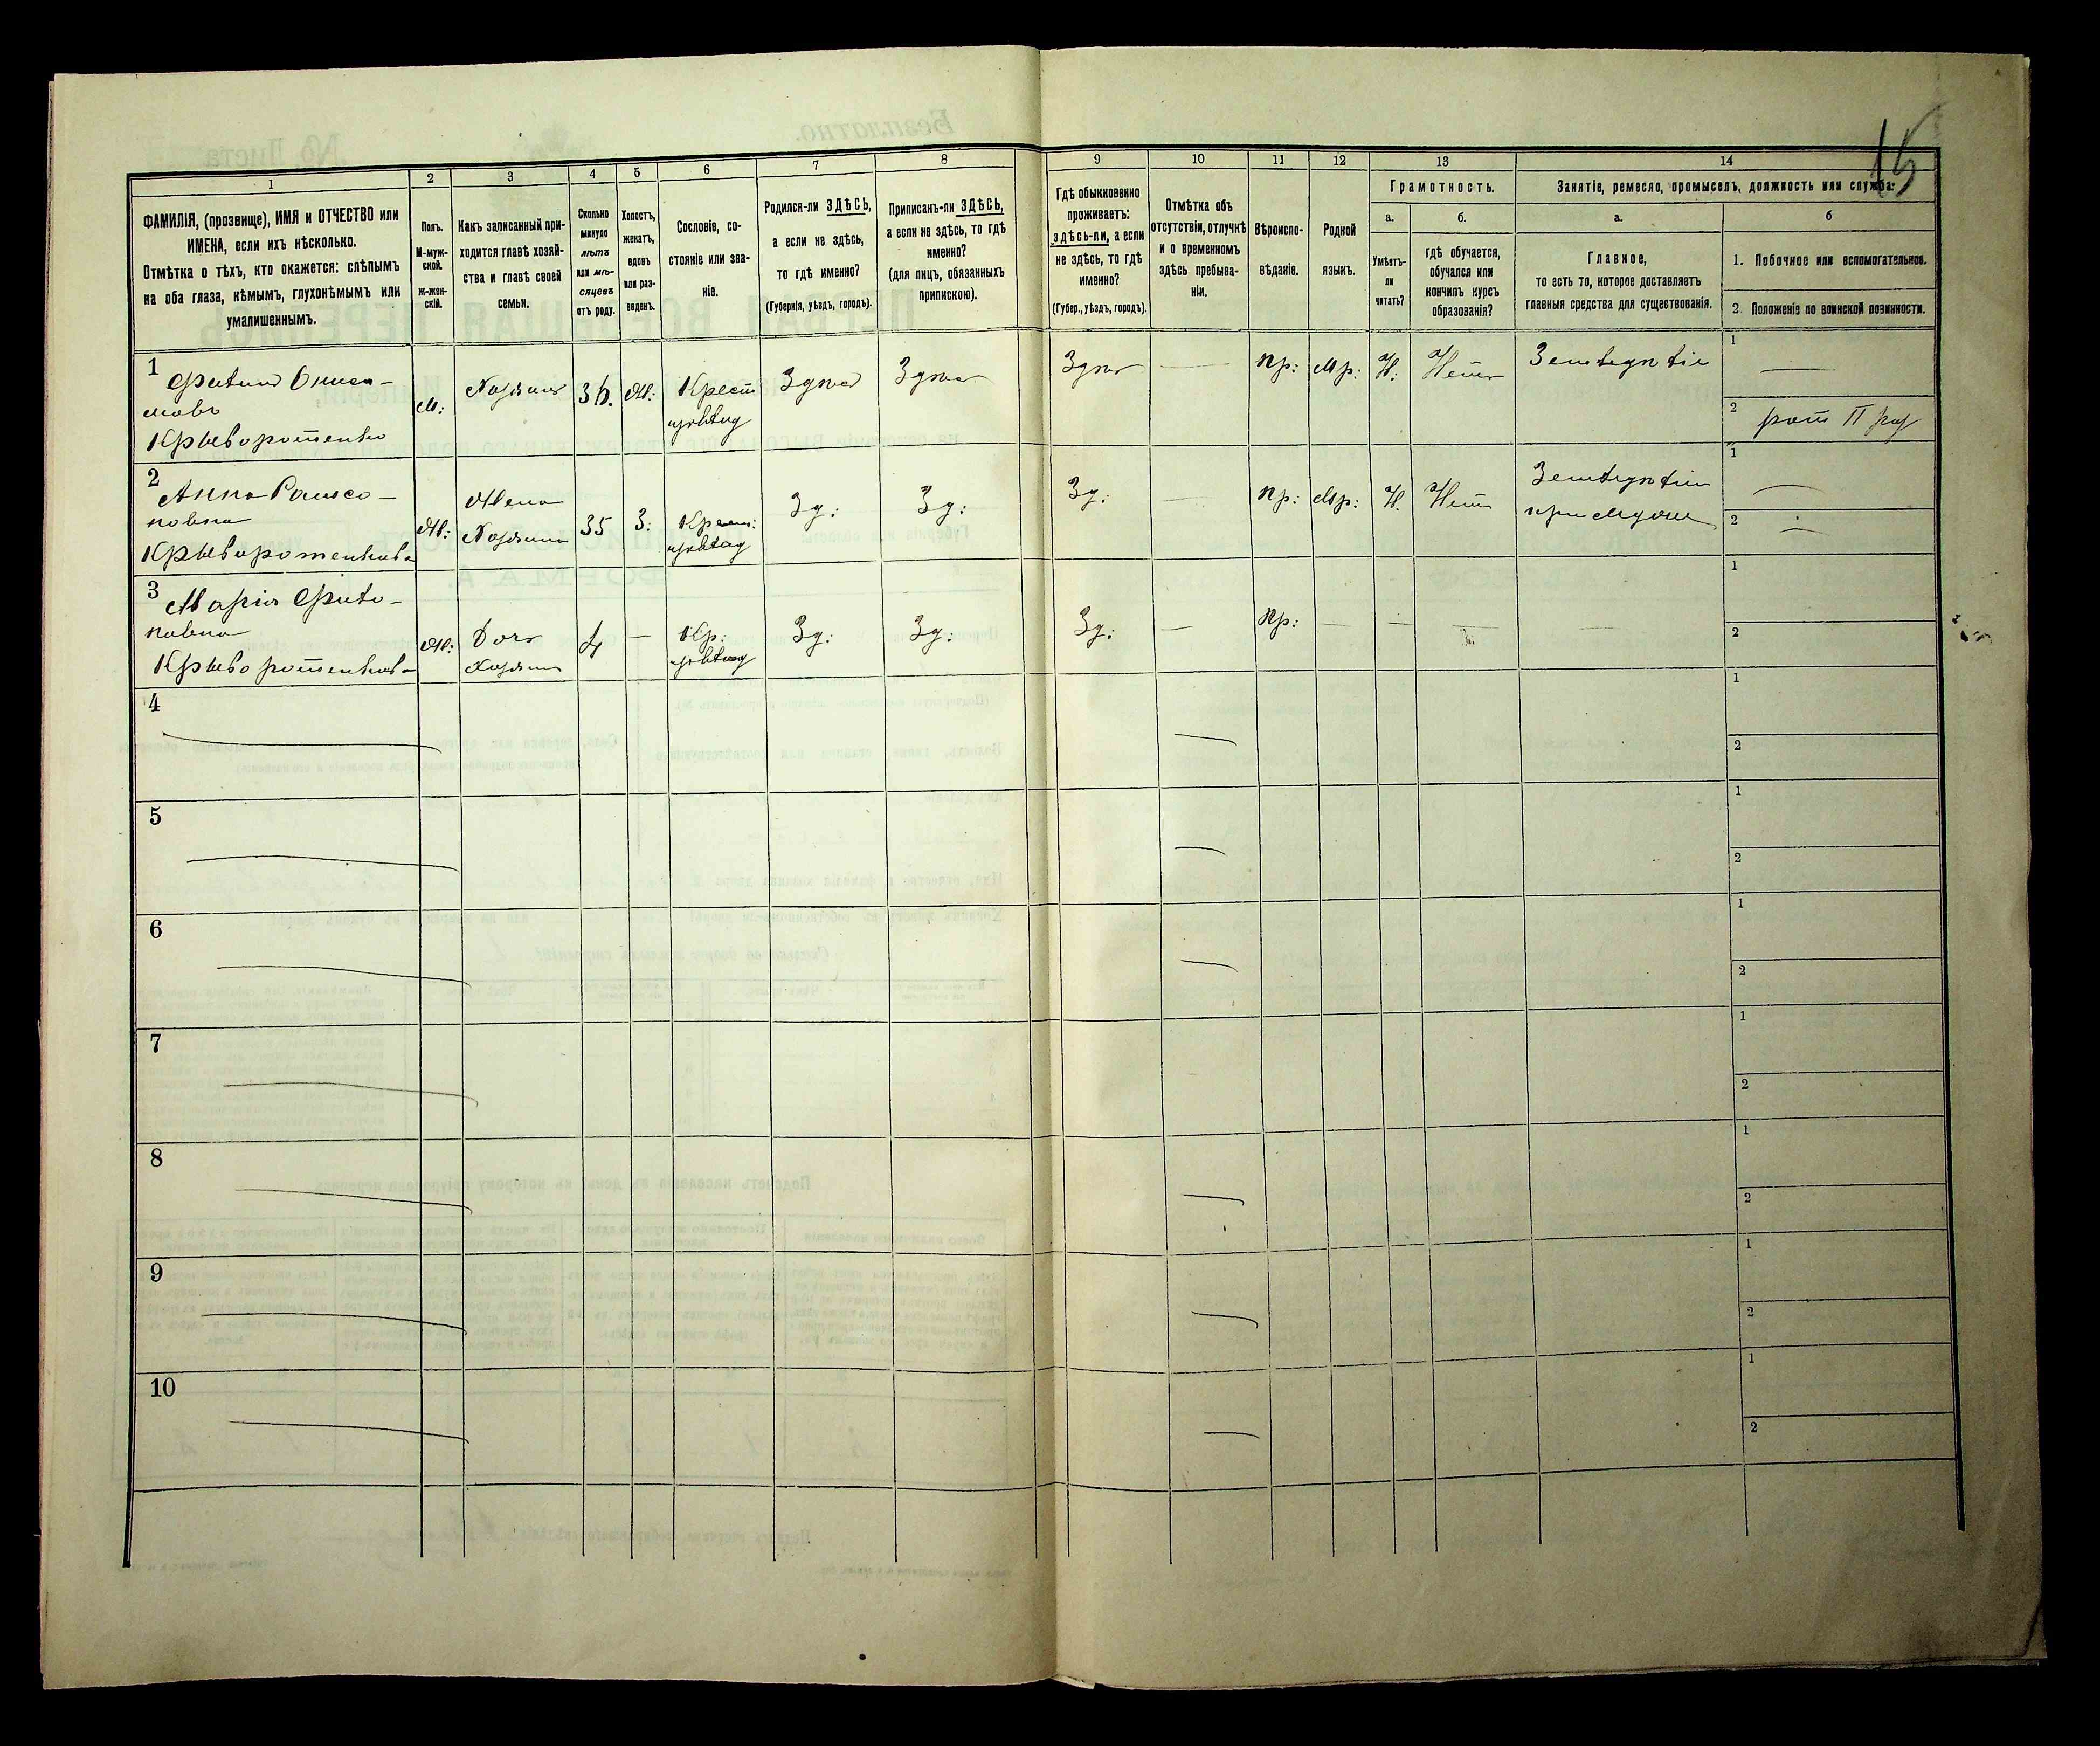 15
1
2
3
4
5
6
7
8
9
10
11
12
13
14
ФАМИЛІЯ, (прозвище), ИМЯ и ОТЧЕСТВО или
ИМЕНА, если ихъ нѣсколько.
Отмѣтка о тѣхъ, кто окажется: слѣпымъ
на оба глаза, нѣмымъ, глухонѣмымъ или
умалишеннымъ.
Полъ.
М-муж-
ской.
Ж-жен-
скій.
Какъ записанный при-
ходится главѣ хозяй-
ства и главѣ своей
семьи.
Сколько
минуло
лѣтъ
или мѣ-
сяцевъ
отъ роду.
Холостъ,
женатъ,
вдовъ
или раз-
веденъ.
Сословіе, со-
стояніе или зва-
ніе.
Родился-ли ЗДѢСЬ,
а если не здѣсь,
то гдѣ именно?
(Губернія, уѣздъ, городъ).
Приписанъ-ли ЗДѢСЬ,
а если не здѣсь, то гдѣ
именно?
(для лицъ, обязанныхъ
припискою).
Гдѣ обыкновенно
проживаетъ:
здѣсь-ли, а если
не здѣсь, то гдѣ
именно?
(Губер., уѣздъ, городъ).
Отмѣтка объ
отсутствіи, отлучкѣ
и о временномъ
здѣсь пребыва-
ніи.
Вѣроиспо-
вѣданіе.
Родной
языкъ.
Грамотность.
а.
Умѣетъ-
ли
читать?
б.
гдѣ обучается,
обучался или
кончилъ курсъ
образованія?
Занятіе, ремесло, промыселъ, должность или служба.
а.
Главное,
то есть то, которое доставляетъ
главныя средства для существованія.
б
1. Побочное или вспомогательное.
2. Положеніе по воинской повинности.
1
Криворотенко
М:
Хозяинъ
36.
Ж:
Крест
Здѣсь
Здѣсь
Здѣсь
пр:
Мр:
Н:
Нетъ
Земледѣліе
1
2
рат II раз
2
Анна
Криворотенкова
Ж:
Жена
Хозяина
35
З:
Крест:
Зд:
Зд:
Зд:
пр:
Мр:
Н.
Нетъ
Земледѣліе
при Мужѣ
1
2
3
Марія
Криворотенкова
Ж:
Дочь
Хозяина
4
Кр:
Зд:
Зд:
Зд:
пр:
1
2
4
1
2
5
1
2
6
1
2
7
1
2
8
1
2
9
1
2
10
1
2